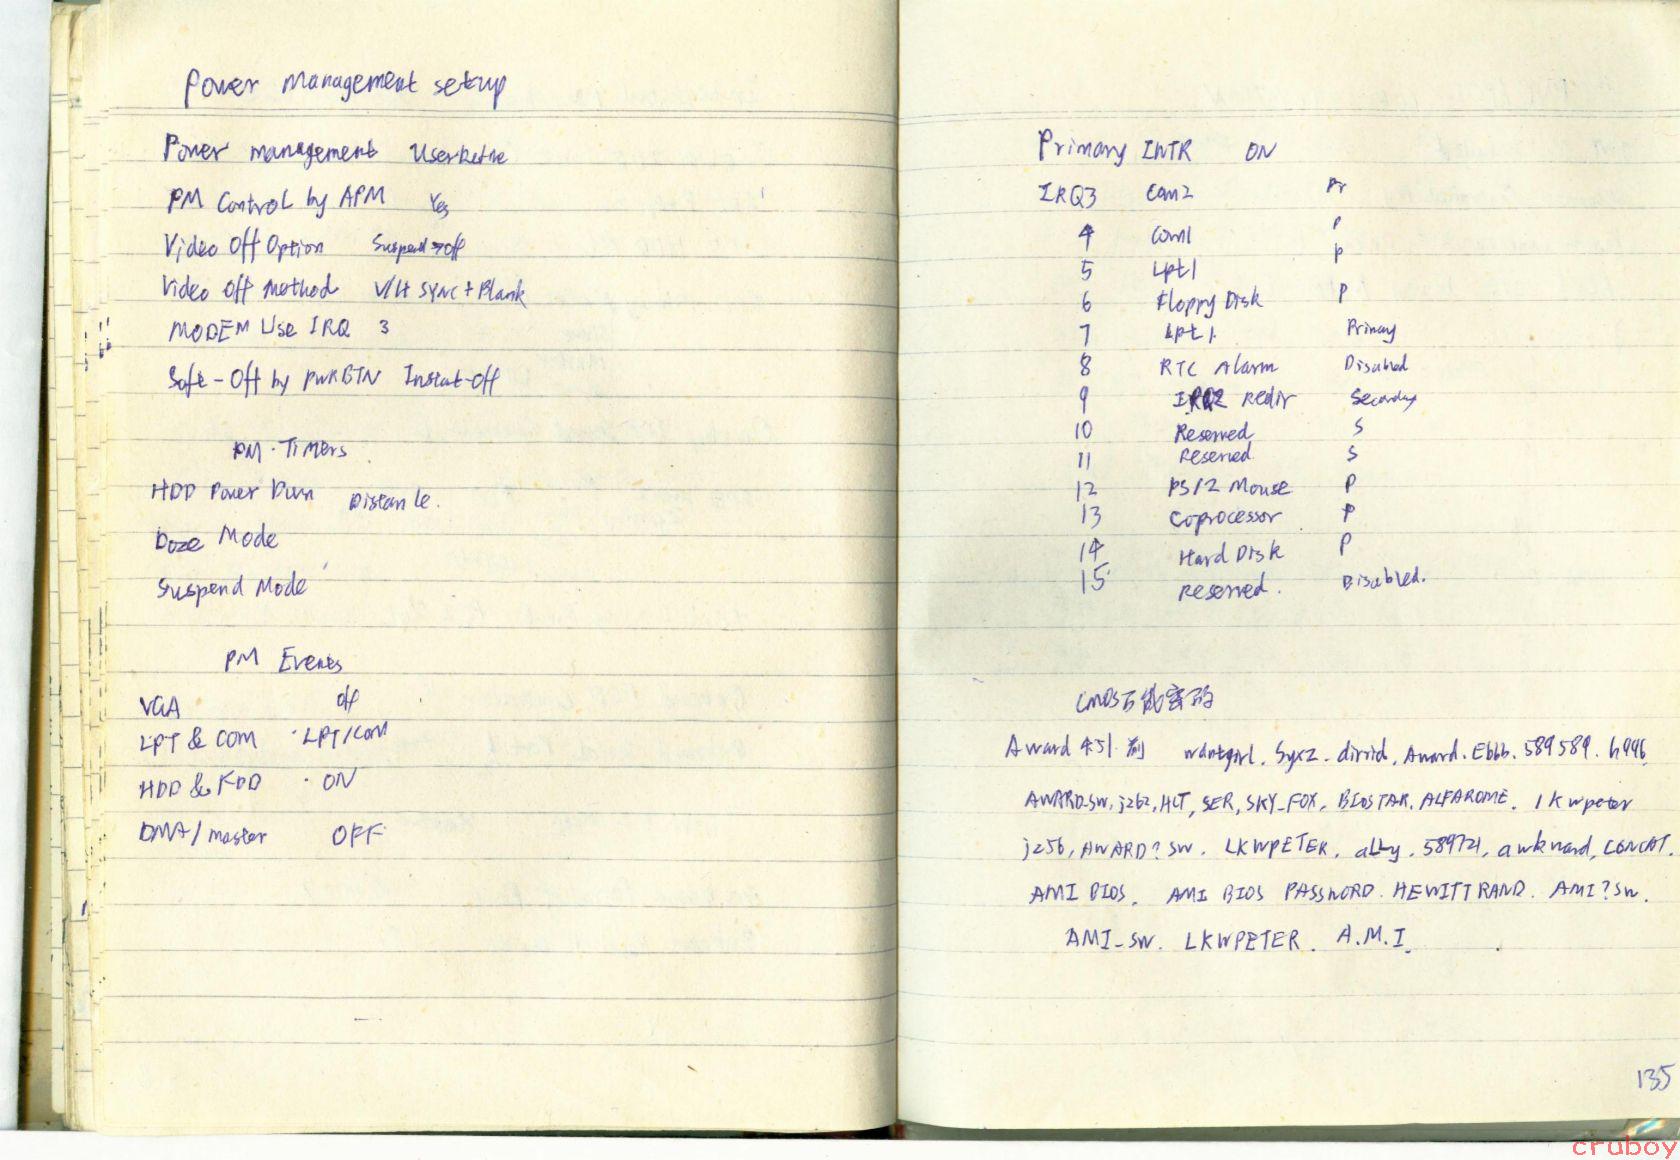 Power Management setup
Power management User Define
PM Control by APM Yes
Video Off Option Suspend→off
Video Off Method V/H SYNC + Blank
MODEM Use IRQ 3
Soft-Off by PWRBTN Instat-off
PM Timers
HDD Power Down Distanle.
Doze Mode
Suspend Mode
PM Events
VGA off
LPT & COM LPT/COM
HDD & FDD ON
DMA/master OFF
Primary INTR ON
IRQ3 Com2 Pr
4 Com1 P
5 Lpt1 P
6 Floppy Disk P
7 Lpt1 Primary
8 RTC Alarm Disabled
9 IRQ2 Redir Secondary
10 Reserved S
11 Reserved S
12 PS/2 Mouse P
13 Coprocessor P
14 Hard Disk P
15 Reserved. Disabled.
CMOS万能密码
Award 4.51 前 wantgirl. Syxz. dirrid. Award. Ebbb. 589589. h996
AWARD_SW, j262, HLT, SER, SKY_FOX, BIOSTAR, ALFAROME. lkwpeter
j256, AWARD?SW. LKWPETER. aLLy. 589721, awkward, CONCAT.
AMI BIOS. AMI BIOS PASSWORD. HEWITT RAND. AMI?SW.
AMI_SW. LKWPETER. A.M.I.
135
cruboy